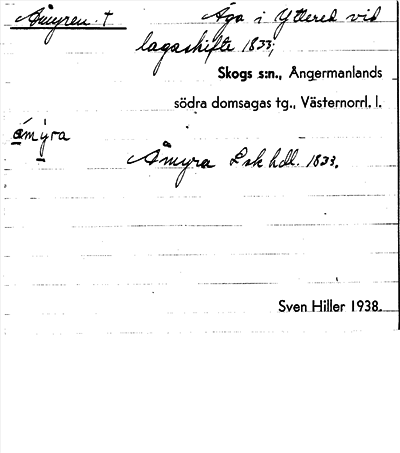 Åmyren. † Äga i Yttered vid
lagaskifte 1833;
Skogs s:n., Ångermanlands
södra domsagas tg., Västernorrl. l.
åmýra
Åmyra Lsk hdl. 1833.
Sven Hiller 1938.